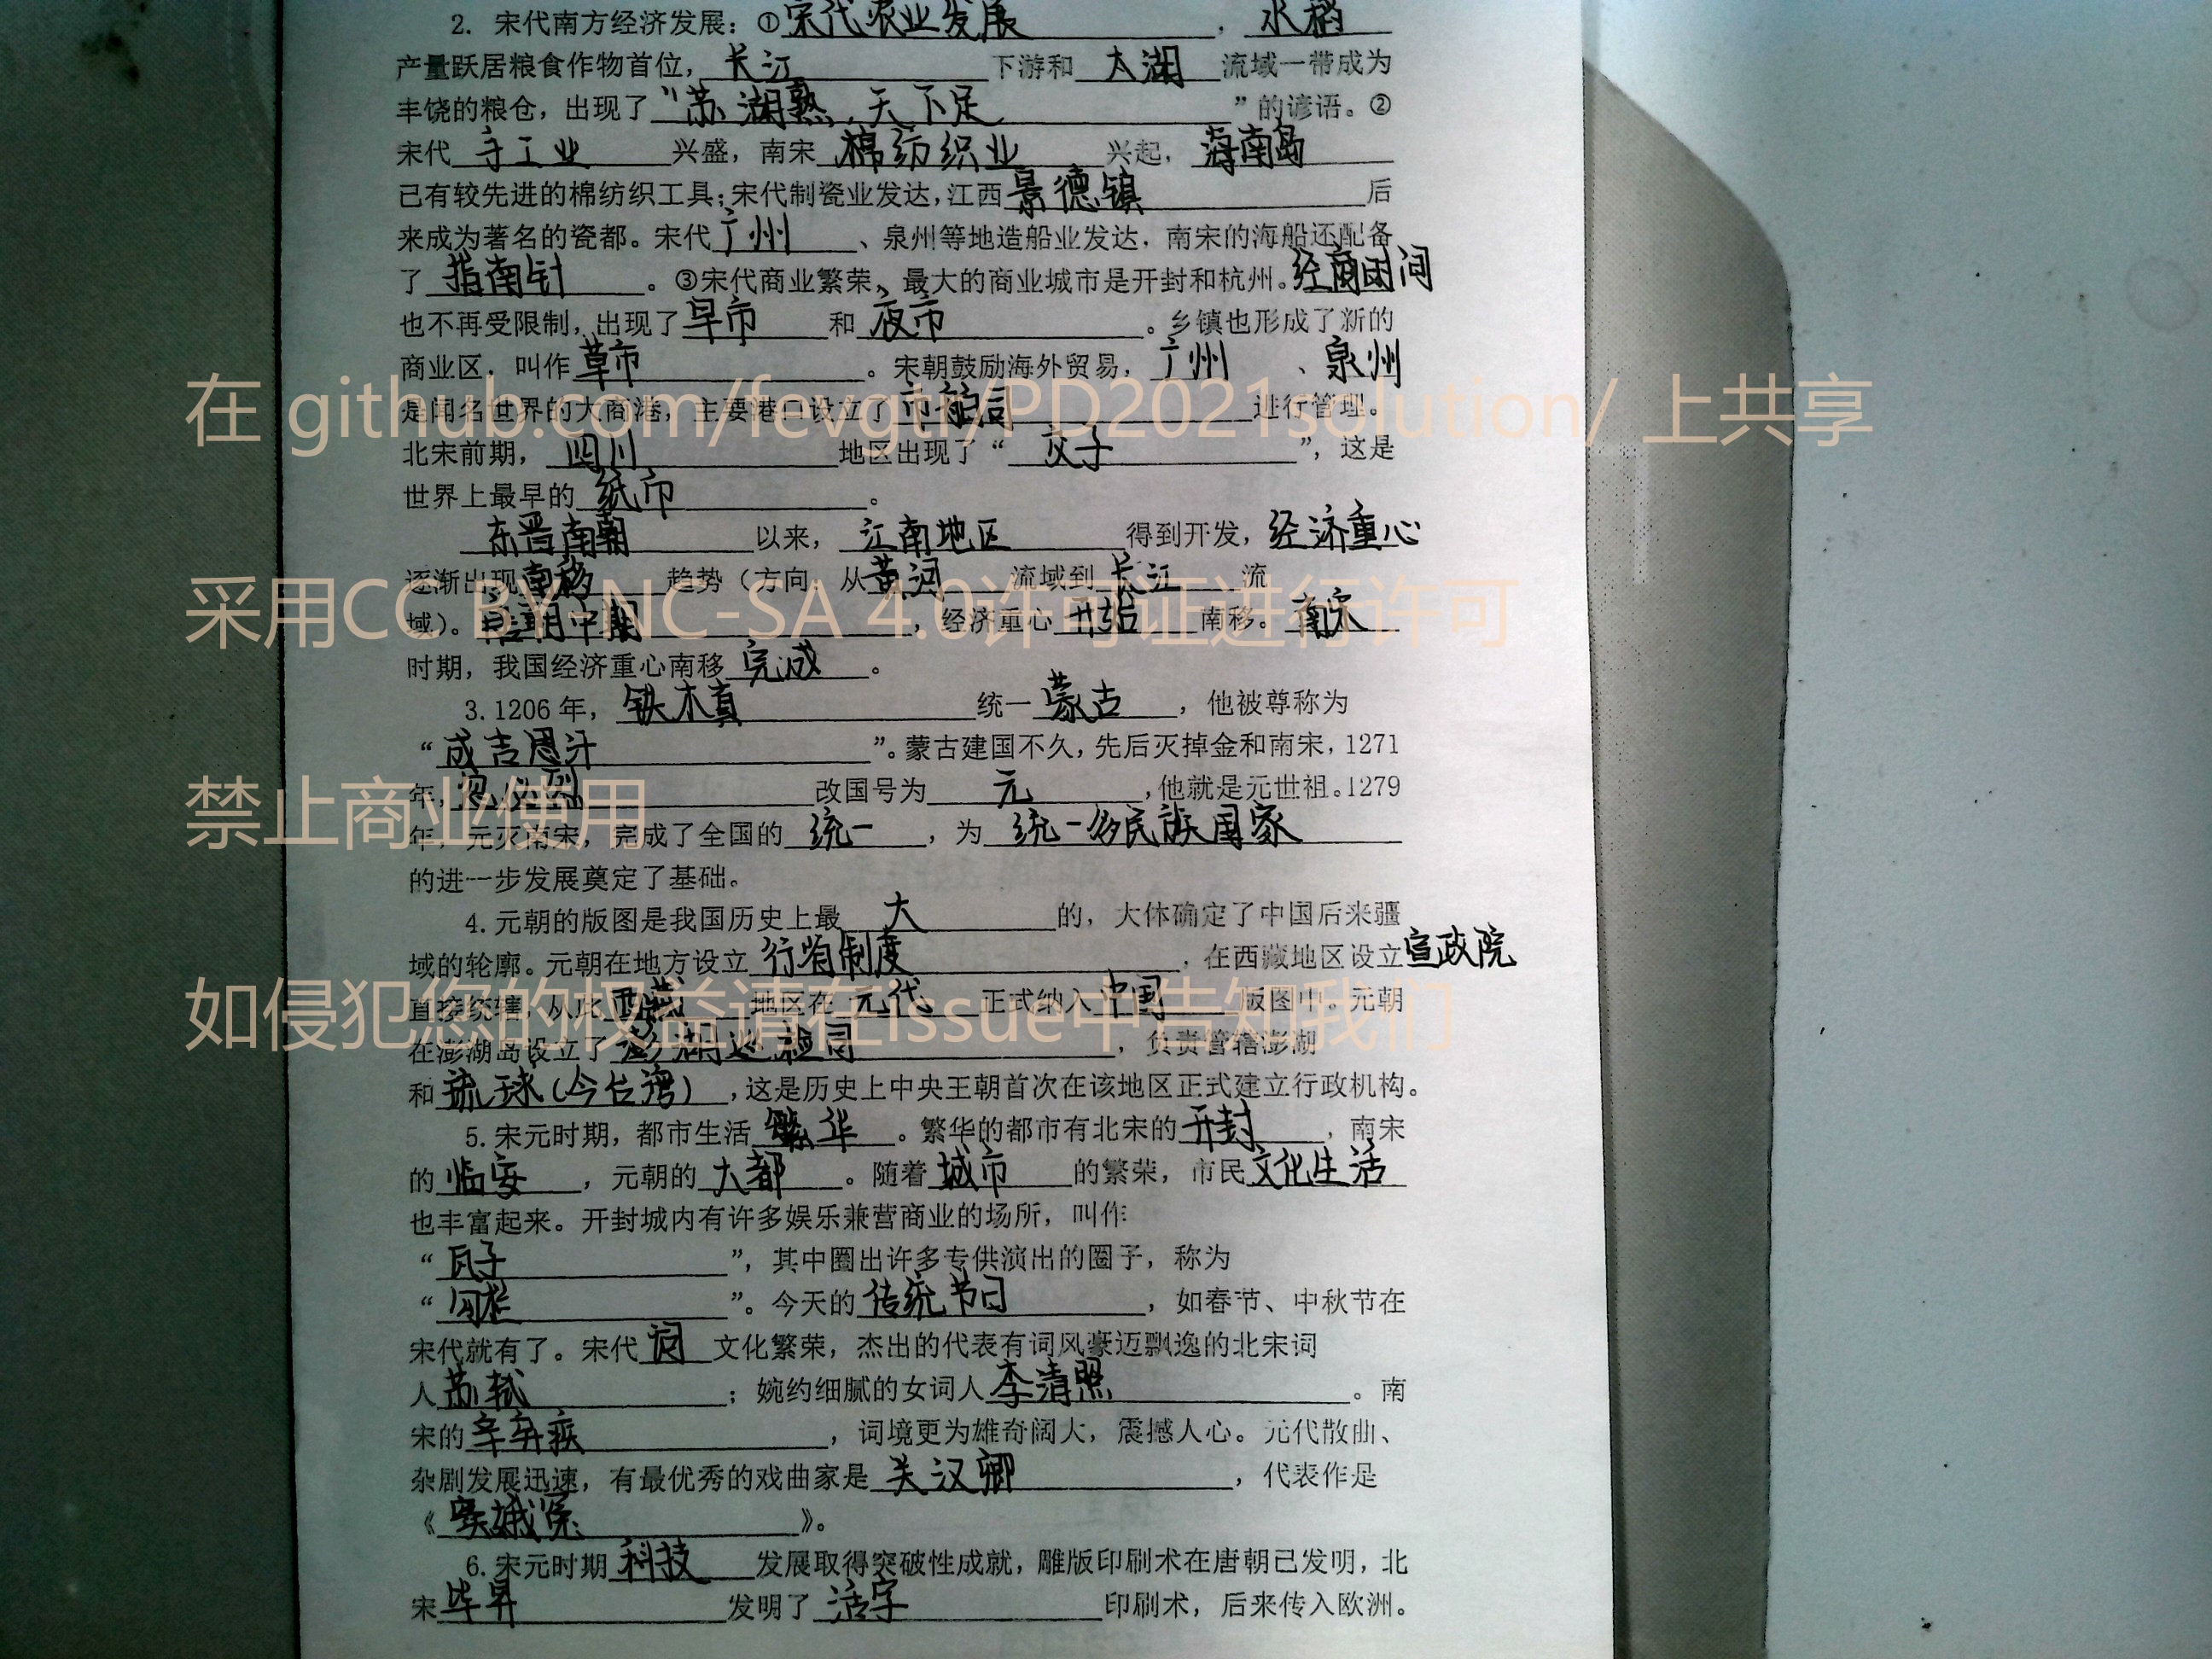 2. 宋代南方经济发展：①宋代农业发展，水稻
产量跃居粮食作物首位，长江下游和太湖流域一带成为
丰饶的粮仓，出现了“苏湖熟，天下足”的谚语。②
宋代手工业兴盛，南宋棉纺织业兴起，海南岛
已有较先进的棉纺织工具；宋代制瓷业发达，江西景德镇后
来成为著名的瓷都。宋代广州、泉州等地造船业发达，南宋的海船还配备
了指南针。③宋代商业繁荣，最大的商业城市是开封和杭州。经商时间
也不再受限制，出现了早市和夜市。乡镇也形成了新的
商业区，叫作草市。宋朝鼓励海外贸易，广州、泉州
在 github.com/fcvgti/PD2021solution/ 上共享
是闻名世界的大商港，主要港口设立了市舶司进行管理。
北宋前期，四川地区出现了“交子”，这是
世界上最早的纸币。
东晋南朝以来，江南地区得到开发，经济重心
逐渐出现南移趋势（方向，从黄河流域到长江流
采用CC BY-NC-SA 4.0许可证进行许可
域）。唐朝中期，经济重心开始南移。南宋
时期，我国经济重心南移完成。
3.1206年，铁木真统一蒙古，他被尊称为
“成吉思汗”。蒙古建国不久，先后灭掉金和南宋，1271
年，忽必烈改国号为元，他就是元世祖。1279
禁止商业使用
年，元灭南宋，完成了全国的统一，为统一多民族国家
的进一步发展奠定了基础。
4.元朝的版图是我国历史上最大的，大体确定了中国后来疆
域的轮廓。元朝在地方设立行省制度，在西藏地区设立宣政院
直接统辖，从此西藏地区在元代正式纳入中国版图中。元朝
如侵犯您的权益请在issue中告知我们
在澎湖岛设立了澎湖巡检司，负责管辖澎湖
和琉球（今台湾），这是历史上中央王朝首次在该地区正式建立行政机构。
5.宋元时期，都市生活繁华。繁华的都市有北宋的开封，南宋
的临安，元朝的大都。随着城市的繁荣，市民文化生活
也丰富起来。开封城内有许多娱乐兼营商业的场所，叫作
“瓦子”，其中圈出许多专供演出的圈子，称为
“勾栏”。今天的传统节日，如春节、中秋节在
宋代就有了。宋代词文化繁荣，杰出的代表有词风豪迈飘逸的北宋词
人苏轼；婉约细腻的女词人李清照。南
宋的辛弃疾，词境更为雄奇阔大，震撼人心。元代散曲、
杂剧发展迅速，有最优秀的戏曲家是关汉卿，代表作是
《窦娥冤》。
6.宋元时期科技发展取得突破性成就，雕版印刷术在唐朝已发明，北
宋毕昇发明了活字印刷术，后来传入欧洲。